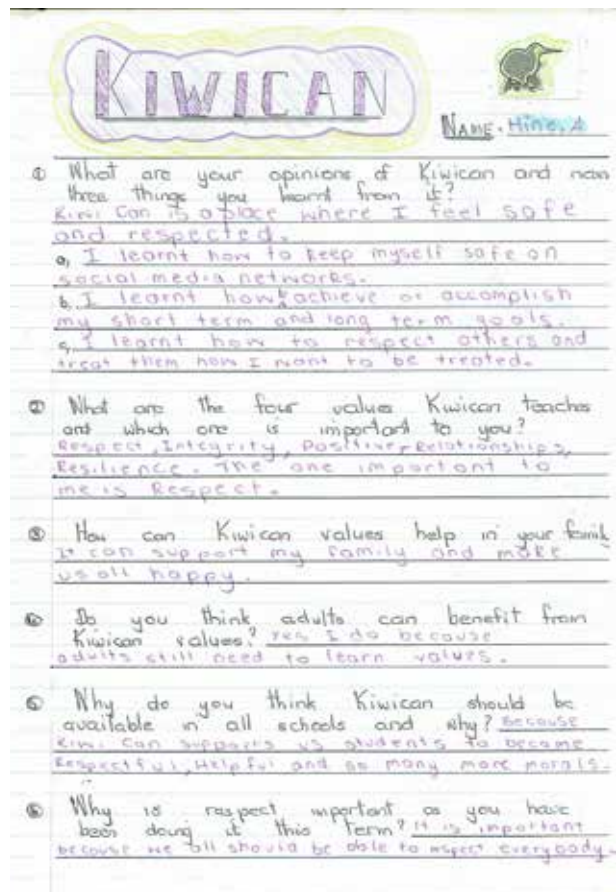 KIWICAN
NAME. Hine. A
① What are your opinions of Kiwican and nam
three things you learnt from it?
Kiwi Can is a place where I feel safe
and respected.
a, I learnt how to keep myself safe on
social media networks.
b, I learnt how to achieve or accomplish
my short term and long term goals.
c, I learnt how to respect others and
treat them how I want to be treated.
② What are the four values Kiwican teaches
and which one is important to you?
Respect, Integrity, Positive, Relationships,
Resilience. The one important to
me is Respect.
③ How can Kiwican values help in your
It can support my family and make
us all happy.
④ Do you think adults can benefit from
Kiwican values? Yes I do because
adults still need to learn values.
⑤ Why do you think Kiwican should be
available in all schools and why? Because
Kiwi Can supports us students to become
Respectful, Helpful and so many more morals.
⑥ Why is respect important as you have
been doing it this Term? It is important
because we all should be able to respect everybody.